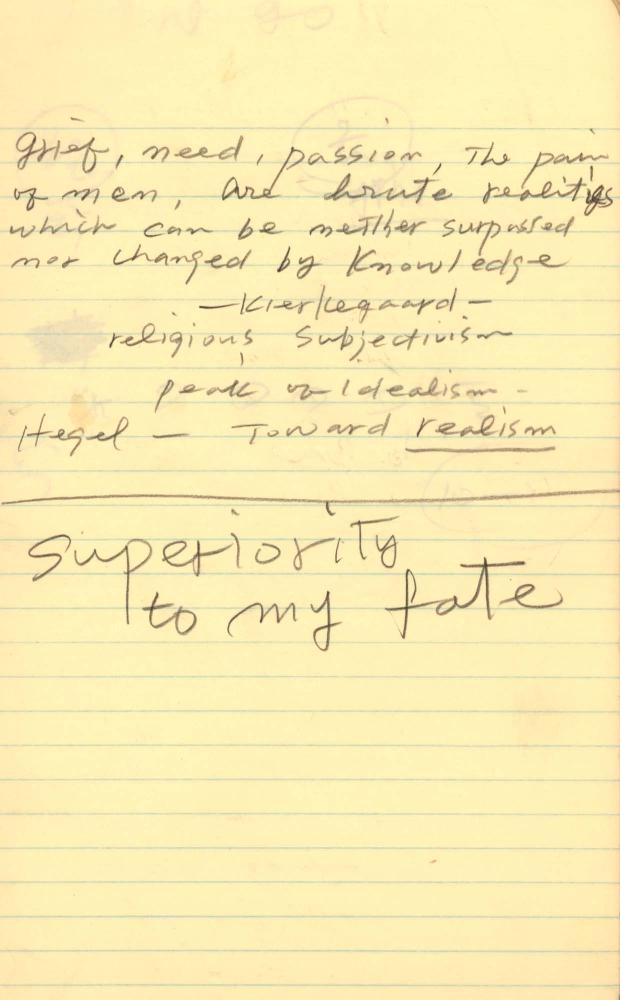 grief, need, passion, The pain
of men, are brute realities
which can be neither surpassed
nor changed by Knowledge
—Kierkegaard—
religious Subjectivism
peak of Idealism -
Hegel — Toward realism
Superiority
to my fate